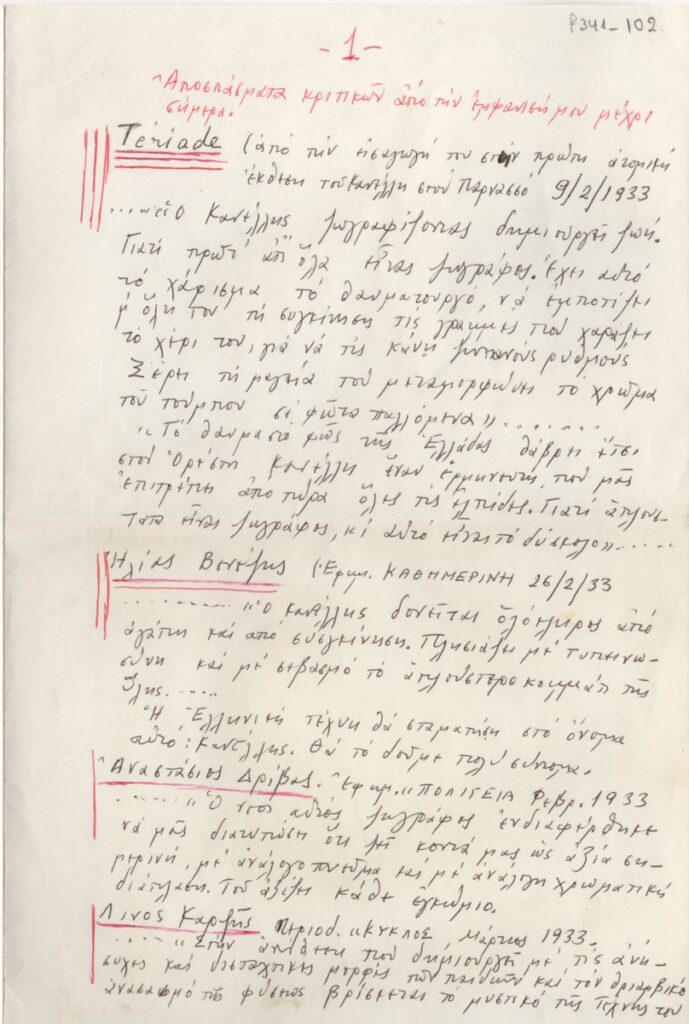 P341-102.
-1-
Ἀποσπάσματα κριτικῶν ἀπό τήν ἐμφανισή μου μέχρι
σήμερα.
Tériade (ἀπό τήν εἰσαγωγή του στήν πρώτη ἀτομική
ἔκθεση τοῦ Κανέλλη στόν Παρνασσό 9/2/1933
Ὁ Κανέλλης ζωγραφίζοντας δημιουργεῖ ζωή.
Γιατί πρῶτ' ἀπ' ὅλα εἶναι ζωγράφος. Ἔχει αὐτό
τό χάρισμα τό θαυματουργό, νά ἐμποτίζει
μ' ὅλη του τή συγκίνηση τίς γραμμές πού χαράζει
τό χέρι του, γιά νά τίς κάνη ζωντανούς ρυθμούς
Ξέρει τή μαγεία πού μεταμορφώνει τό χρῶμα
τοῦ τούμπου σέ φῶτα παλλόμενα».......
"Τό θαυμαστό φῶς τῆς Ἑλλάδας θάβρει ἔτσι
στόν Ὀρέστη Κανέλλη ἕναν ἑρμηνευτή, πού μᾶς
ἐπιτρέπει ἀπό τώρα ὅλες τίς ἐλπίδες. Γιατί ἁπλούσ-
τατα εἶναι ζωγράφος, κι αὐτό εἶναι τό δύσκολο».....
Ἠλίας Βενέζης (Ἐφημ. ΚΑΘΗΜΕΡΙΝΗ 26/2/33
........ "Ὁ Κανέλλης δονεῖται ὁλόκληρος ἀπό
ἀγάπη καί ἀπό συγκίνηση. Πλησιάζει μέ ταπεινω-
σύνη καί μέ σεβασμό τό ἁπλούστερο κομμάτι τῆς
ὕλης.....
Ἡ Ἑλληνική τέχνη θά σταματήση στό ὄνομα
αὐτό: Κανέλλης. Θά τό δοῦμε πολύ σύντομα.
Ἀναστάσιος Δρίβας. Ἐφημ. «ΠΟΛΙΤΕΙΑ Φεβρ. 1933
...... "Ὁ νέος αὐτός ζωγράφος ἐνδιαφέρθηκε
νά μᾶς διατυπώση ὅτι ζῆ κοντά μας ὡς ἀξία ση-
μερινή, μέ ἀνάλογο πνεῦμα καί μέ ἀνάλογη χρωματική
διάπλαση. Τοῦ ἀξίζει κάθε ἐγκώμιο.
Λίνος Καρζῆς Περιοδ. «ΚΥΚΛΟΣ Μάρτιος 1933-
..... "Στήν ἀντίθεση πού δημιουργεῖ μέ τίς ἀνή-
συχες καί δισταχτικές μορφές τῶν παιδιῶν καί τόν θριαμβικό
ἀνασασμό τῆς φύσεως βρίσκεται τό μυστικό τῆς τέχνης του